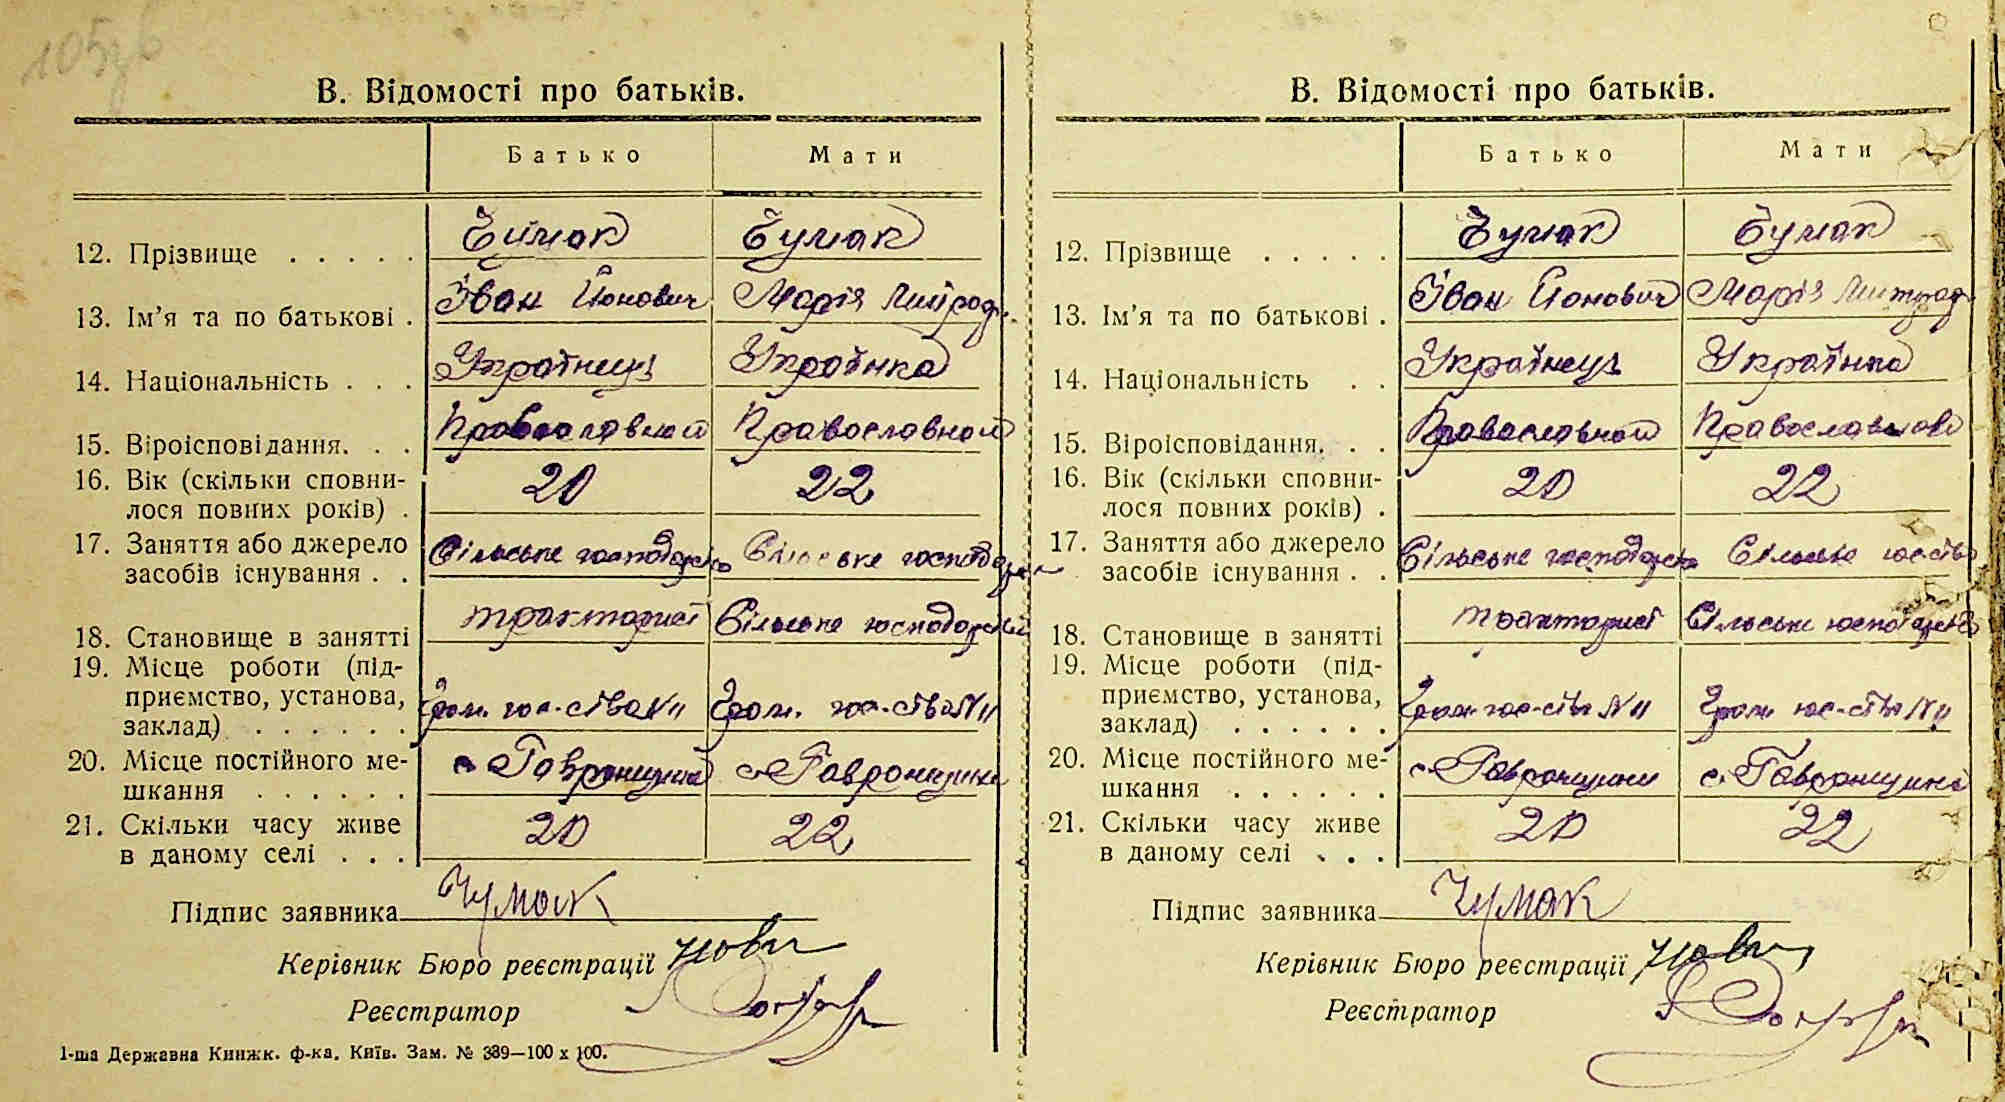 105зв
В. Відомості про батьків.
Батько Мати
12. Прізвище . . . . . Чумак Чумак
13. Ім’я та по батькові . Іван Йонович Марія
14. Національність . . . Українець Українка
15. Віроісповідання. . . Православной Православной
16. Вік (скільки сповни-
лося повних років) . 20 22
17. Заняття або джерело
засобів існування . . Сільське господарство Сільське господарство
18. Становище в занятті тракторист Сільське господарство
19. Місце роботи (під-
приємство, установа,
заклад) . . . . . . Гром. гос-ство №11 Гром. гос-ство №11
20. Місце постійного ме-
шкання . . . . . . с. Гавронщина с. Гавронщина
21. Скільки часу живе
в даному селі . . . 20 22
Підпис заявника Чумак
Керівник Бюро реєстрації
Реєстратор
1-ша Державна Книжк. ф-ка. Київ. Зам. № 389—100 x 100.
В. Відомості про батьків.
Батько Мати
12. Прізвище . . . . . Чумак Чумак
13. Ім’я та по батькові . Іван Йонович Марія
14. Національність . . Українець Українка
15. Віроісповідання. . . Православной Православной
16. Вік (скільки сповни-
лося повних років) . 20 22
17. Заняття або джерело
засобів існування . . Сільське господарство Сільське гос-ство
18. Становище в занятті тракторист Сільське господарство
19. Місце роботи (під-
приємство, установа,
заклад) . . . . . . Гром. гос-ство №11 Гром. гос-ство №11
20. Місце постійного ме-
шкання . . . . . . с. Гавронщина с. Гавронщина
21. Скільки часу живе
в даному селі . . . 20 22
Підпис заявника Чумак
Керівник Бюро реєстрації
Реєстратор